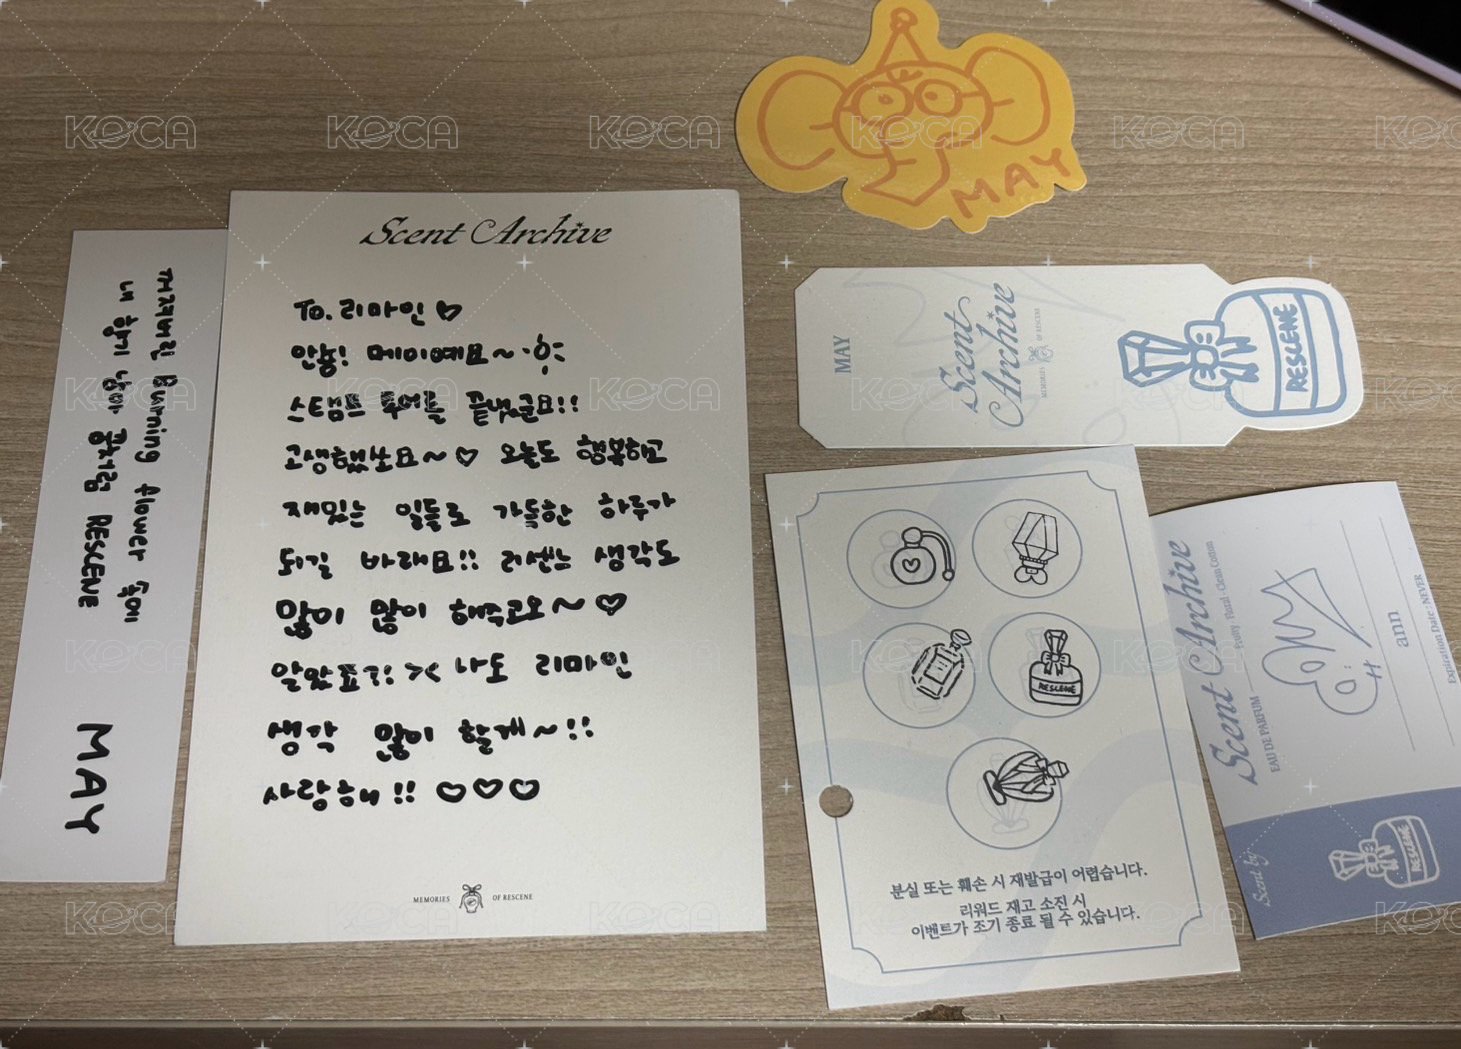 꺼져버린 Burning flower 속에
내 향기 남아 꽃처럼 RESCENE
MAY
Scent Archive
To. 리마인 ♡
안뇽! 메이예요~
스탬프 투어를 끝냈군요!!
고생했쏘요~♡ 오늘도 행복하고
재밌는 일들로 가득한 하루가
되길 바래요!! 리센느 생각도
많이 많이 해주고요~♡
알았죠?! >< 나도 리마인
생각 많이 할게~!!
사랑해!! ♡♡♡
MEMORIES OF RESCENE
MAY
MAY
Scent
Archive
MEMORIES OF RESCENE
RESCENE
RESCENE
분실 또는 훼손 시 재발급이 어렵습니다.
리워드 재고 소진 시
이벤트가 조기 종료 될 수 있습니다.
Scent Archive
EAU DE PARFUM
Peony · Floral · Clean Cotton
ann
Expiration Date : NEVER
Scent by
RESCENE
KOCA